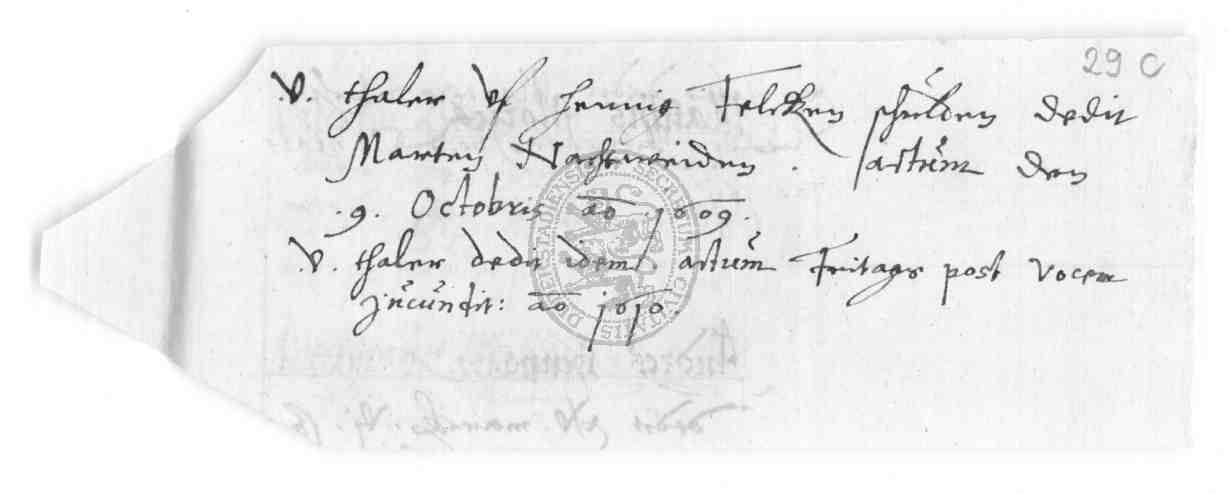 29 C
.v. thaler vf hennig Felcken schulden dedit
Marten Nachtweiden . actum den
.9. Octobris ao 1609.
.v. thaler dedit idem actum Freitags post Vocem
Jucundit: ao 1610.